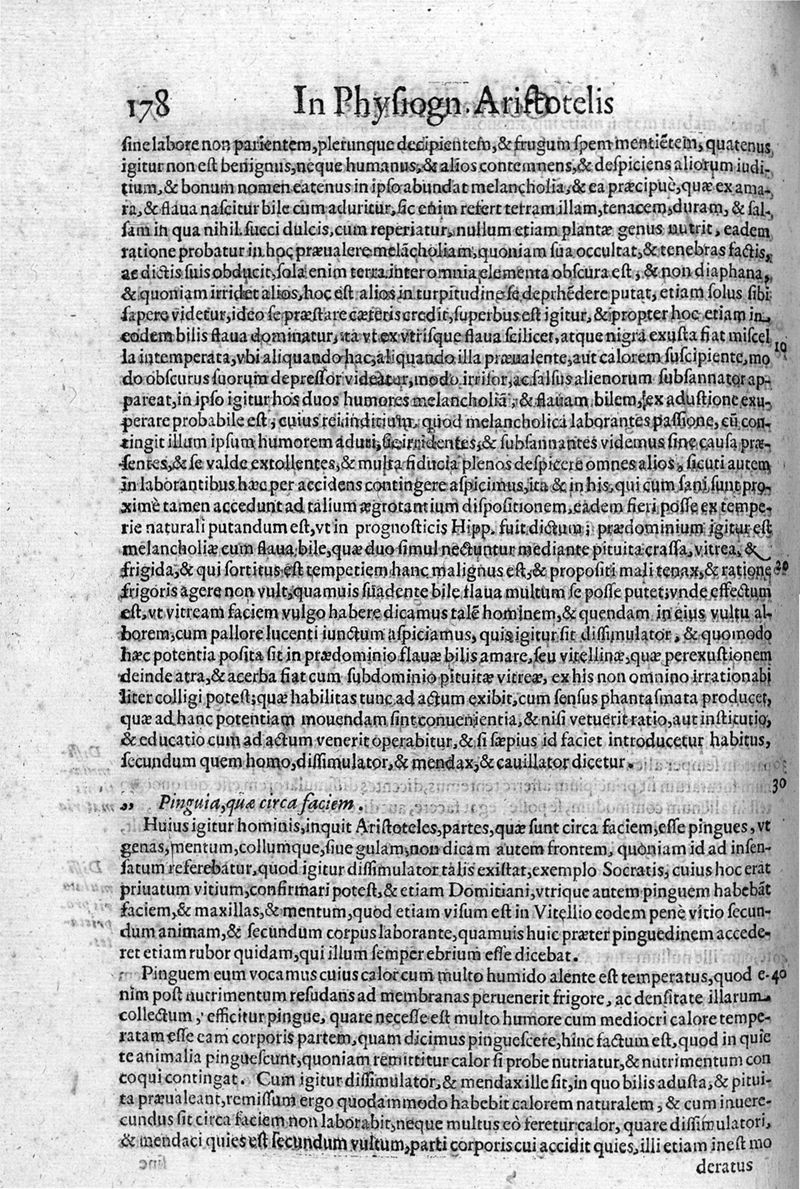 178 In Physiogn. Aristotelis
sine labore non parientem, plerunque decipientem, & frugum spem mentiẽtem, quatenus
igitur non est benignus, neque humanus, & alios contemnens, & despiciens aliorum iudi-
tium, & bonum nomen eatenus in ipso abundat melancholia, & ea præcipuè, quæ ex ama-
ra, & flaua nascitur bile cùm aduritur, sic enim refert terram illam, tenacem, duram, & sal-
sam in qua nihil succi dulcis, cum reperiatur, nullum etiam plantæ genus nutrit, eadem
ratione probatur in hoc præualere melãcholiam, quoniam sua occultat, & tenebras factis,
ac dictis suis obducit, sola enim terra inter omnia elementa obscura est, & non diaphana,
& quoniam irridet alios, hoc est alios in turpitudine se deprhẽdere putat, etiam solus sibi
sapere videtur, ideo se præstare cæteris credit, superbus est igitur, & propter hoc etiam in
eodem bilis flaua dominatur, ita vt ex vtrisque flaua scilicet, atque nigra exusta fiat miscel
10
la intemperata, vbi aliquando hac, aliquando illa præualente, aut calorem suscipiente, mo
do obscurus suorum depressor videatur, modo irrisor, ac falsus alienorum subsannator ap-
pareat, in ipso igitur hos duos humores melancholiã, & flauam bilem, ex adustione exu-
perare probabile est, cuius rei inditium, quod melancholica laborantes passione, cũ con-
tingit illum ipsum humorem aduri, sic irridentes, & subsannantes videmus sine causa præ-
sentes, & se valde extollentes, & multa fiducia plenos despicere omnes alios, sicuti autem
in laborantibus hæc per accidens contingere aspicimus, ita & in his, qui cum sani sunt pro-
ximè tamen accedunt ad talium ægrotantium dispositionem, eadem fieri posse ex tempe-
rie naturali putandum est, vt in prognosticis Hipp. fuit dictum; prædominium igitur est
melancholiæ cum flaua bile, quæ duo simul nectuntur mediante pituita crassa, vitrea, &
frigida, & qui sortitus est temperiem hanc malignus est, & propositi mali tenax, & ratione
20
frigoris agere non vult, quamuis suadente bile flaua multum se posse putet; vnde effectum
est, vt vitream faciem vulgo habere dicamus talẽ hominem, & quendam in eius vultu al-
borem, cum pallore lucenti iunctum aspiciamus, quis igitur sit dissimulator, & quomodo
hæc potentia posita sit in prædominio flauæ bilis amare, seu vitellinæ, quæ per exustionem
deinde atra, & acerba fiat cum subdominio pituitæ vitreæ, ex his non omnino irrationabi
liter colligi potest; quæ habilitas tunc ad actum exibit, cum sensus phantasmata producet,
quæ ad hanc potentiam mouendam sint conuenientia, & nisi vetuerit ratio, aut institutio,
& educatio cum ad actum venerit operabitur, & si sæpius id faciet introducetur habitus,
secundum quem homo, dissimulator, & mendax, & cauillator dicetur.
30
„ Pinguia, quæ circa faciem.
Huius igitur hominis, inquit Aristoteles, partes, quæ sunt circa faciem, esse pingues, vt
genas, mentum, collumque, siue gulam, non dicam autem frontem, quoniam id ad insen-
satum referebatur, quod igitur dissimulator talis existat, exemplo Socratis, cuius hoc erat
priuatum vitium, confirmari potest, & etiam Domitiani, vtrique autem pinguem habebãt
faciem, & maxillas, & mentum, quod etiam visum est in Vitellio eodem penè vitio secun-
dum animam, & secundum corpus laborante, quamuis huic præter pinguedinem accede-
ret etiam rubor quidam, qui illum semper ebrium esse dicebat.
Pinguem eum vocamus cuius calor cum multo humido alente est temperatus, quod e-
40
nim post nutrimentum resudans ad membranas peruenerit frigore, ac densitate illarum
collectum, efficitur pingue, quare necesse est multo humore cum mediocri calore tempe-
ratam esse eam corporis partem, quam dicimus pinguescere, hinc factum est, quod in quie
te animalia pinguescunt, quoniam remittitur calor si probe nutriatur, & nutrimentum con
coqui contingat. Cum igitur dissimulator, & mendax ille sit, in quo bilis adusta, & pitui-
ta præualeant, remissum ergo quodammodo habebit calorem naturalem, & cum inuere-
cundus sit circa faciem non laborabit, neque multus eò feretur calor, quare dissimulatori,
& mendaci quies est secundum vultum, parti corporis cui accidit quies, illi etiam inest mo
deratus